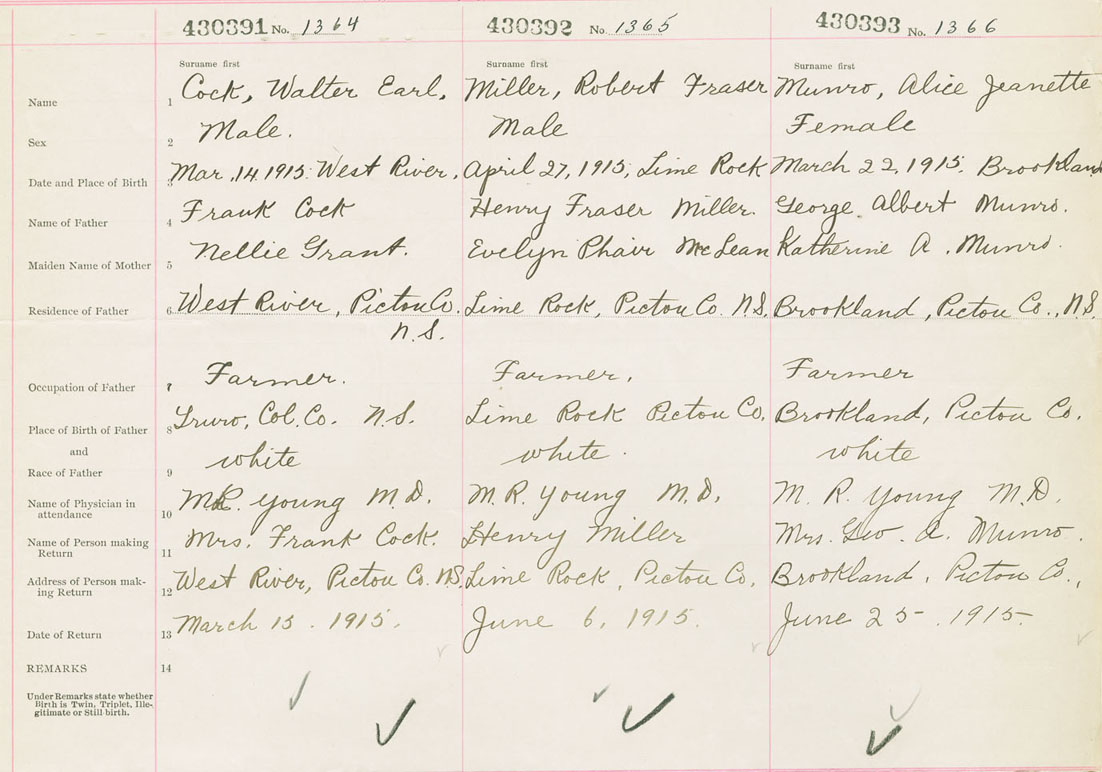 430391 No. 1364 430392 No. 1365 430393 No. 1366
Surname first Surname first Surname first
Name 1 Cock, Walter Earl. Miller, Robert Fraser Munro, Alice Jeanette
Sex 2 Male. Male Female
Date and Place of Birth 3 Mar. 14 1915. West River. April 27, 1915, Lime Rock March 22, 1915. Brookland
Name of Father 4 Frank Cock Henry Fraser Miller. George Albert Munro.
Maiden Name of Mother 5 Nellie Grant. Evelyn Phair McLean Katherine A. Munro.
Residence of Father 6 West River, Pictou Co. Lime Rock, Pictou Co. N.S. Brookland, Pictou Co., N.S.
N.S.
Occupation of Father 7 Farmer. Farmer. Farmer
Place of Birth of Father 8 Truro, Col. Co. N.S. Lime Rock Pictou Co. Brookland, Pictou Co.
and white white. white
Race of Father 9
Name of Physician in attendance 10 M.R. Young M.D. M.R. Young M.D. M. R. Young M.D.
Name of Person making Return 11 Mrs. Frank Cock. Henry Miller Mrs. Geo. A. Munro.
Address of Person mak-ing Return 12 West River, Pictou Co. N.S. Lime Rock, Pictou Co. Brookland, Pictou Co.,
Date of Return 13 March 15. 1915. June 6, 1915. June 25. 1915
REMARKS 14
Under Remarks state whether
Birth is Twin, Triplet, Ille-
gitimate or Still birth.